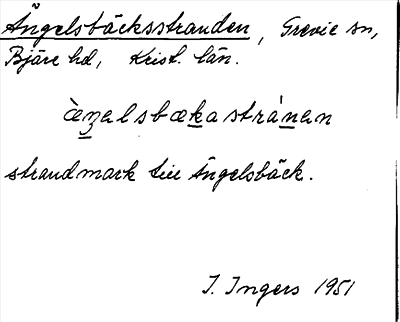 Ängelsbäcksstranden, Grevie sn,
Bjäre hd, Krist. län.
àʒalsbækastránan
strandmark till Ängelsbäck.
I. Ingers 1951